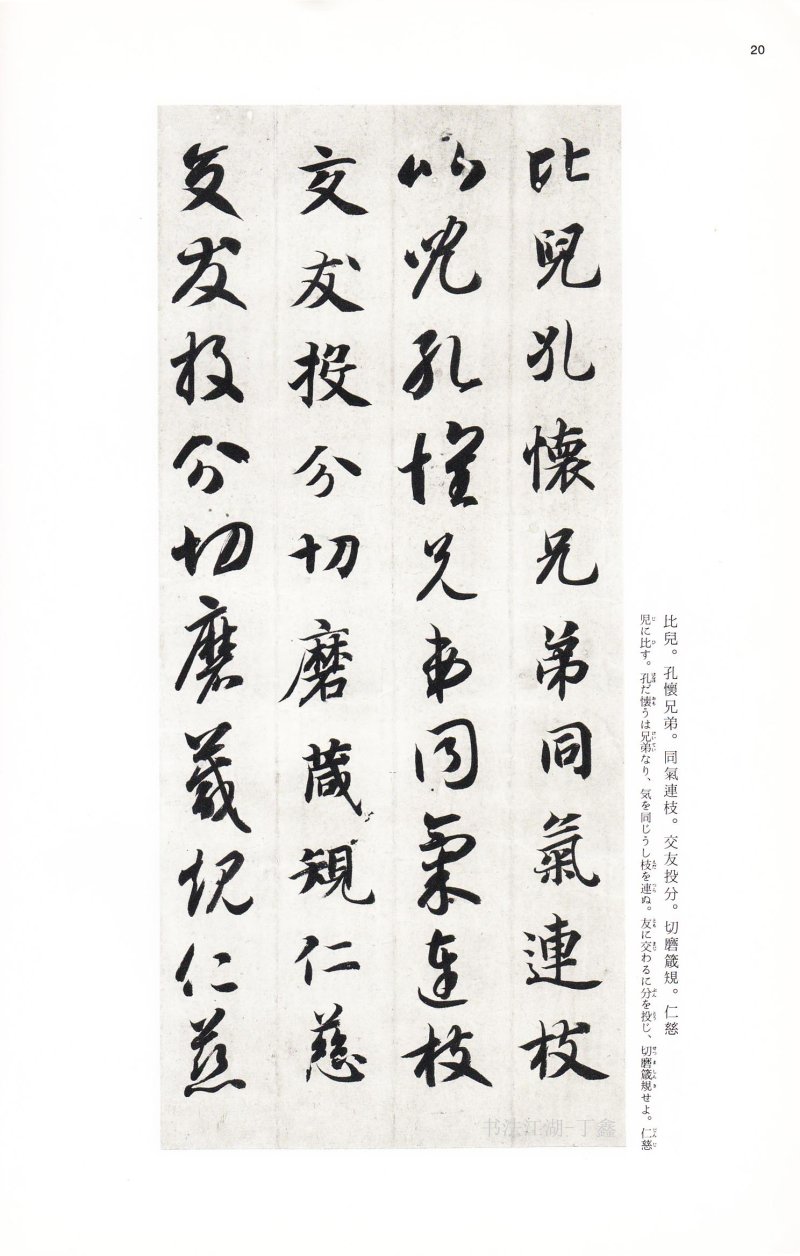 20
比兒孔懷兄弟同氣連枝
比兒孔懷兄弟同氣連枝
交友投分切磨箴規仁慈
交友投分切磨箴規仁慈
比兒。孔懷兄弟。同氣連枝。交友投分。切磨箴規。仁慈
児に比す。孔だ懐うは兄弟なり、気を同じうし枝を連ぬ。友に交わるに分を投じ、切磨箴規せよ。仁慈
书法江湖-丁鑫